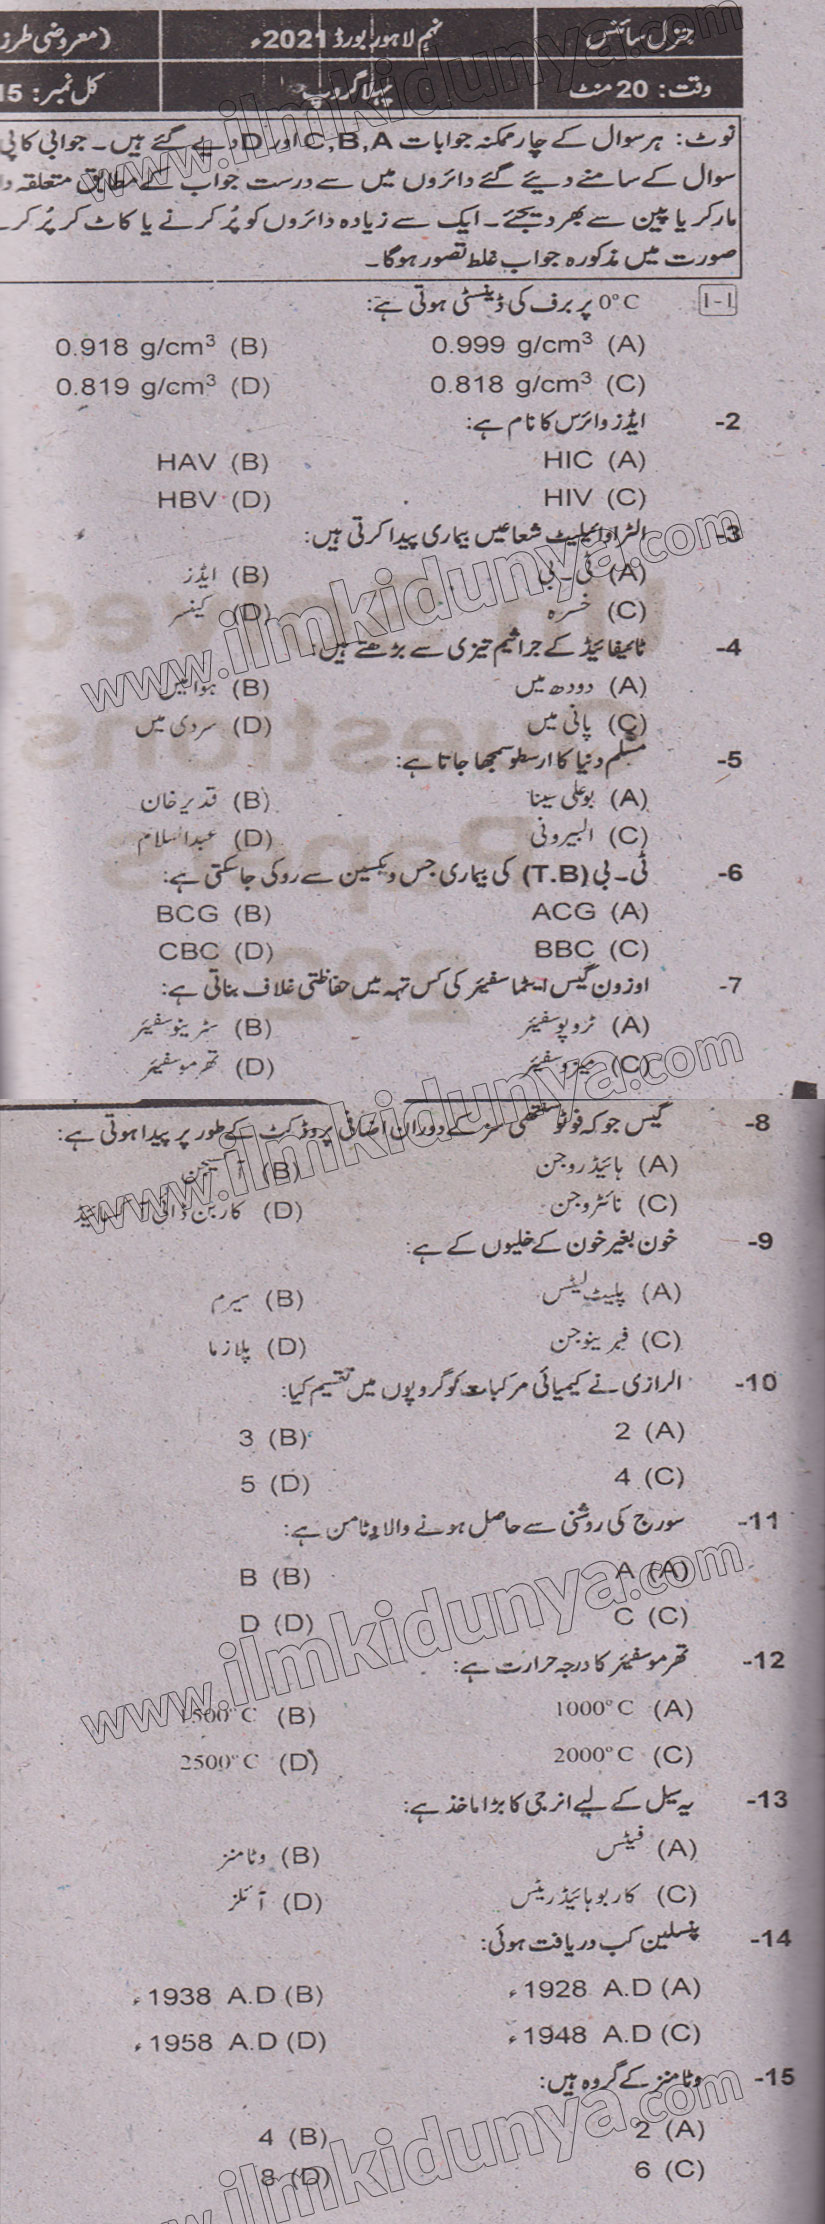 جنرل سائنس نہم لاہور بورڈ 2021ء (معروضی طرز
وقت: 20 منٹ پہلا گروپ کل نمبر: 15
نوٹ: ہر سوال کے چار ممکنہ جوابات A,B,C اور D دیے گئے ہیں۔ جوابی کاپی
سوال کے سامنے دیئے گئے دائروں میں سے درست جواب کے مطابق متعلقہ
مارکر یا پین سے بھر دیجئے۔ ایک سے زیادہ دائروں کو پُر کرنے یا کاٹ کر پُر کر
صورت میں مذکورہ جواب غلط تصور ہوگا۔
1-I 0°C پر برف کی ڈینسٹی ہوتی ہے:
(A) 0.999 g/cm³ (B) 0.918 g/cm³
(C) 0.818 g/cm³ (D) 0.819 g/cm³
-2 ایڈز وائرس کا نام ہے:
(A) HIC (B) HAV
(C) HIV (D) HBV
-3 الٹراوائیلیٹ شعاعیں بیماری پیدا کرتی ہیں:
(A) ٹی۔بی (B) ایڈز
(C) خسرہ (D) کینسر
-4 ٹائیفائیڈ کے جراثیم تیزی سے بڑھتے ہیں:
(A) دودھ میں (B) ہوا میں
(C) پانی میں (D) سردی میں
-5 مسلم دنیا کا ارسطو سمجھا جاتا ہے:
(A) بوعلی سینا (B) قدیر خان
(C) البیرونی (D) عبدالسلام
-6 ٹی۔بی (T.B) کی بیماری جس ویکسین سے روکی جا سکتی ہے:
(A) ACG (B) BCG
(C) BBC (D) CBC
-7 اوزون گیس ایٹماسفیئر کی کس تہہ میں حفاظتی غلاف بناتی ہے:
(A) ٹروپوسفیئر (B) سٹرینوسفیئر
(C) میزوسفیئر (D) تھرموسفیئر
-8 گیس جو کہ فوٹوسنتھی سز کے دوران اضافی پروڈکٹ کے طور پر پیدا ہوتی ہے:
(A) ہائیڈروجن (B) آکسیجن
(C) نائٹروجن (D) کاربن ڈائی آکسائیڈ
-9 خون بغیر خون کے خلیوں کے ہے:
(A) پلیٹ لیٹس (B) سیرم
(C) فیبرینوجن (D) پلازما
-10 الرازی نے کیمیائی مرکبات کو گروپوں میں تقسیم کیا:
(A) 2 (B) 3
(C) 4 (D) 5
-11 سورج کی روشنی سے حاصل ہونے والا وٹامن ہے:
(A) A (B) B
(C) C (D) D
-12 تھرموسفیئر کا درجہ حرارت ہے:
(A) 1000°C (B) 1500°C
(C) 2000°C (D) 2500°C
-13 یہ سیل کے لیے انرجی کا بڑا ماخذ ہے:
(A) فیٹس (B) وٹامنز
(C) کاربوہائیڈریٹس (D) آئلز
-14 پنسلین کب دریافت ہوئی:
(A) 1928 A.D ء (B) 1938 A.D ء
(C) 1948 A.D ء (D) 1958 A.D ء
-15 وٹامنز کے گروہ ہیں:
(A) 2 (B) 4
(C) 6 (D) 8
www.ilmkidunya.com